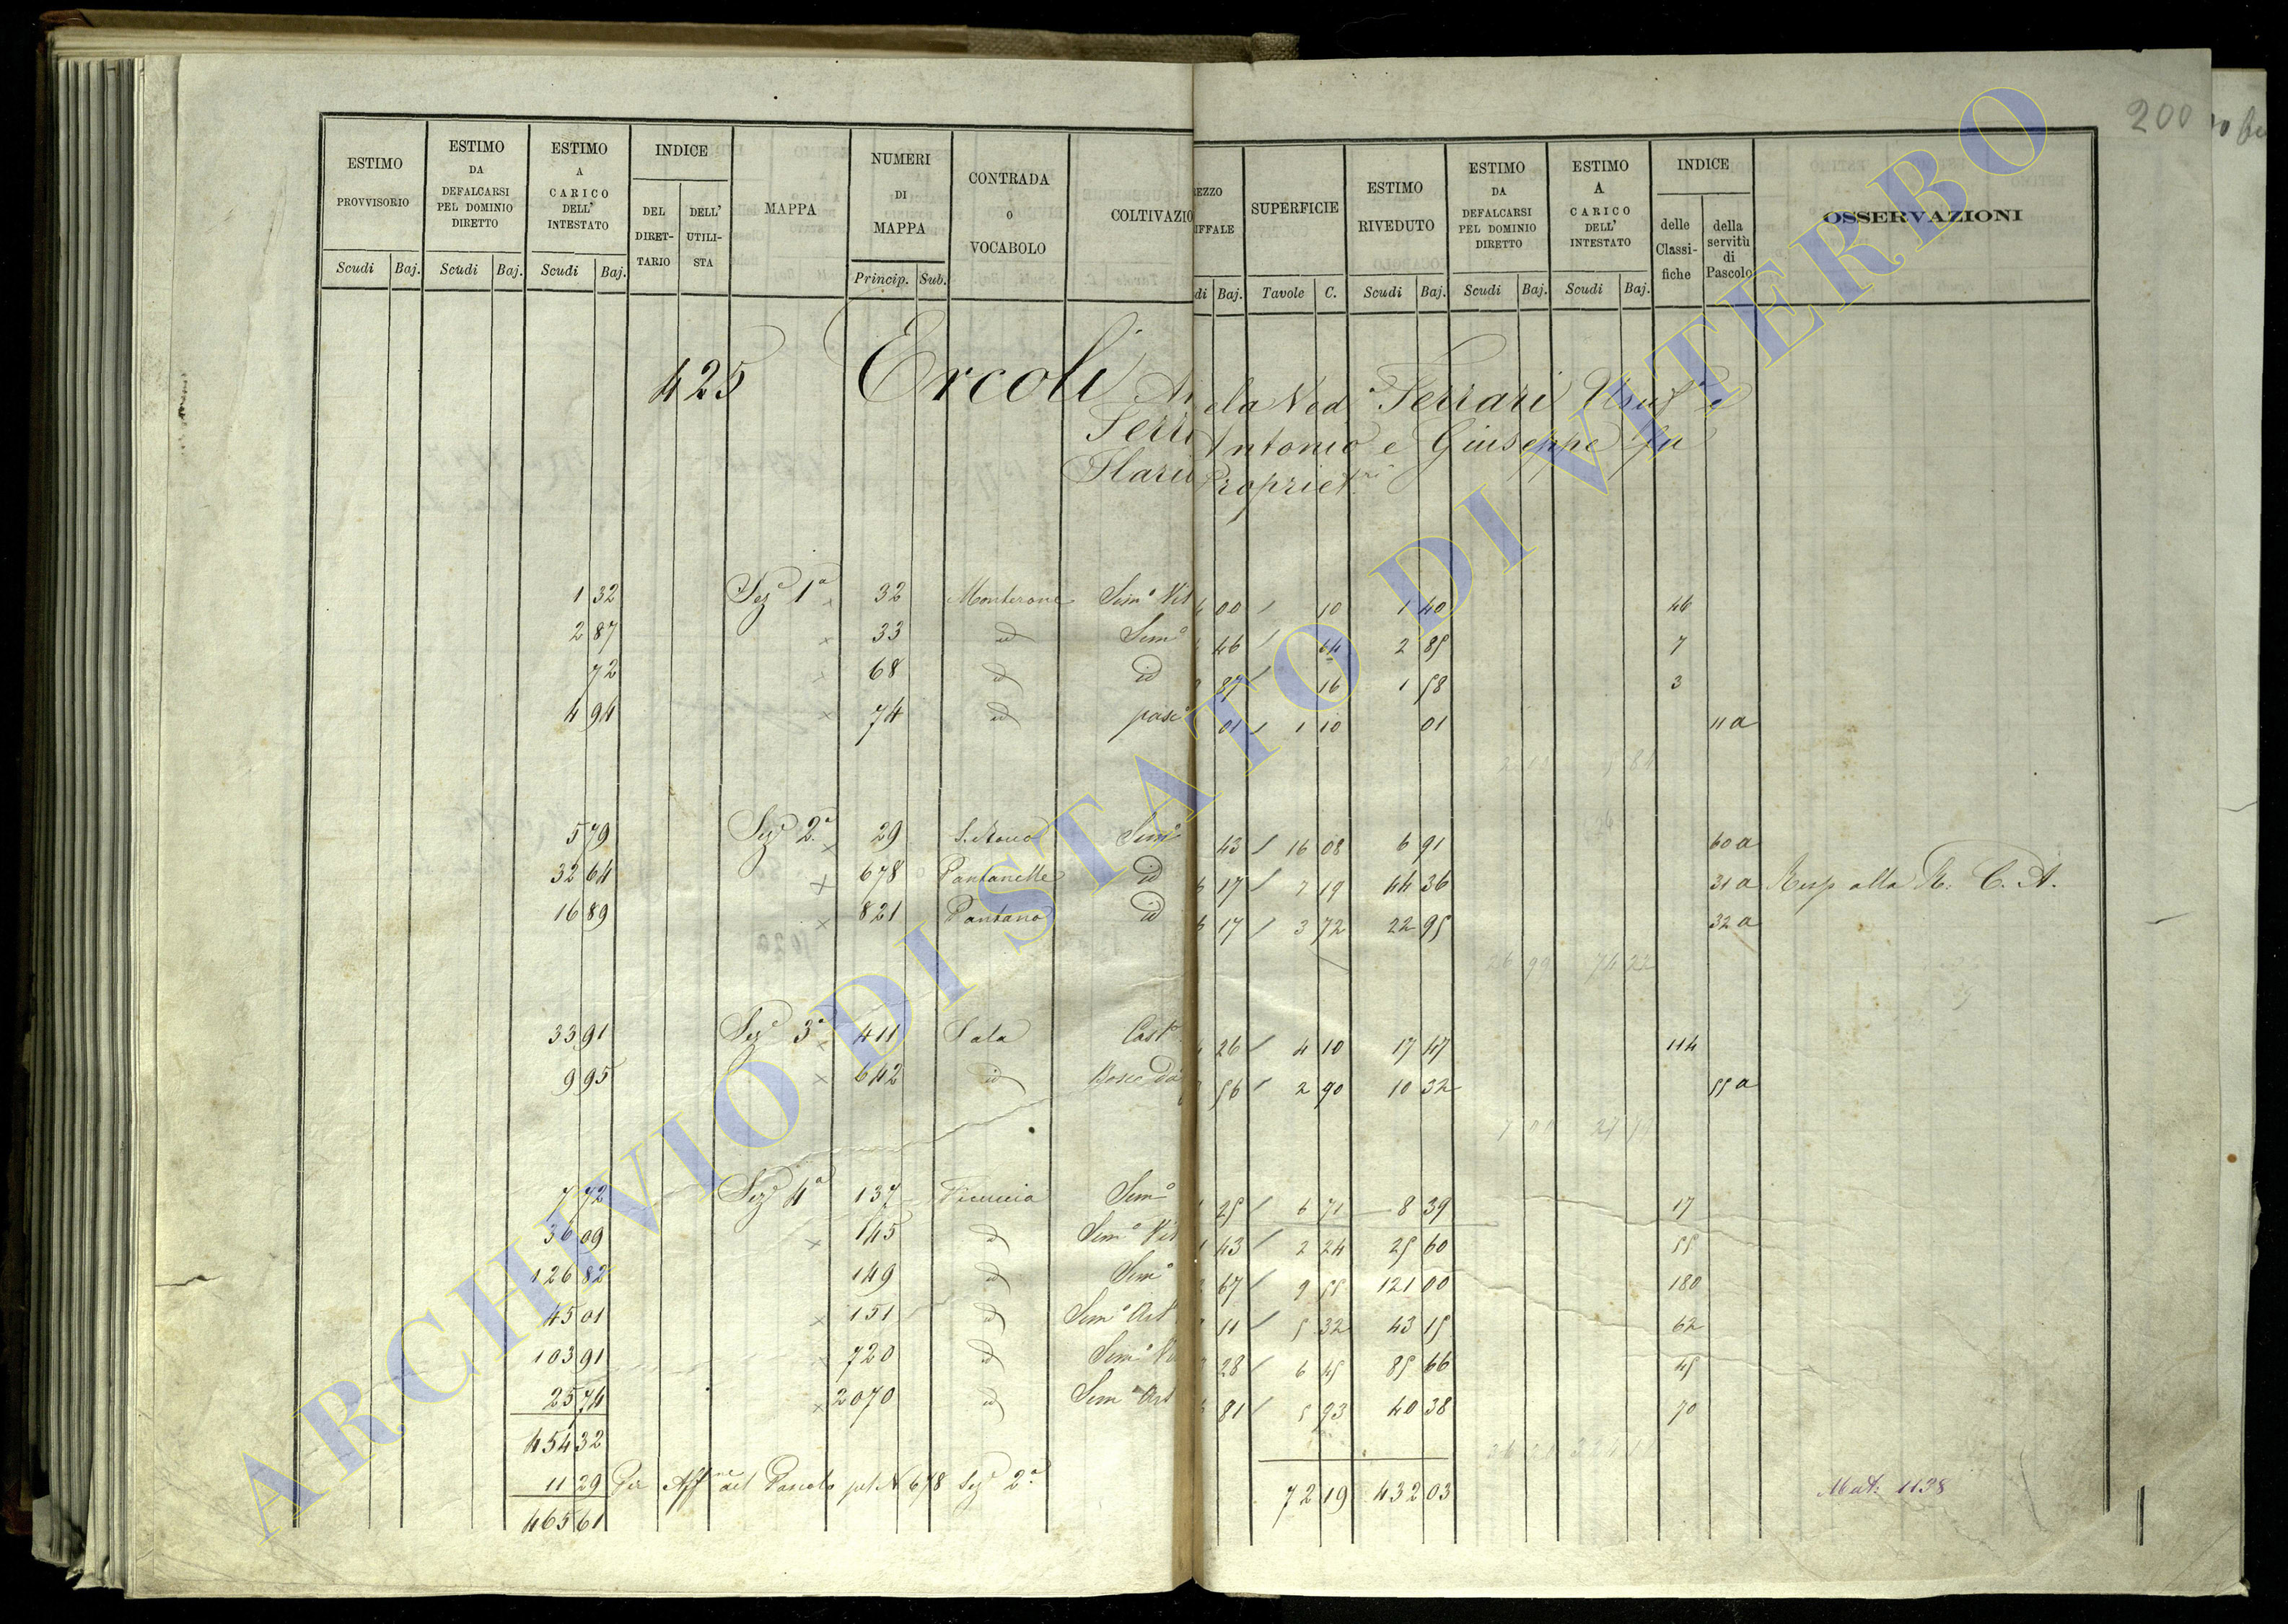 200
ESTIMO PROVVISORIO
ESTIMO DA DEFALCARSI PEL DOMINIO DIRETTO
ESTIMO A CARICO DELL' INTESTATO
INDICE
DEL DIRET-TARIO
DELL' UTILI-STA
MAPPA
NUMERI DI MAPPA
CONTRADA O VOCABOLO
COLTIVAZIO
EZZO IFFALE
SUPERFICIE
ESTIMO RIVEDUTO
ESTIMO DA DEFALCARSI PEL DOMINIO DIRETTO
ESTIMO A CARICO DELL' INTESTATO
INDICE
delle Classi-fiche
della servitù di Pascolo
OSSERVAZIONI
Scudi Baj. Scudi Baj. Scudi Baj. Princip. Sub. di Baj. Tavole C. Scudi Baj. Scudi Baj. Scudi Baj.
425 Ercoli An ela Ved.a Ferrari Usuf.a e
Ferr Antonio e Giuseppe fu
Ilario Propriet.ri
1 32 Sez.e 1a 32 Monterone Sem.o Vit 00 10 1 40 46
2 87 33 id Sem.o 46 64 2 85 7
72 68 id id 87 16 1 58 3
4 94 74 id pasc.o 01 1 10 01 11 a
5 79 Sez.e 2a 29 S. Rocco Sem.o 43 16 08 6 91 60 a
32 64 678 Pantanelle id 6 17 7 19 44 36 31 a Resp alla R. C. A.
16 89 821 Pantano id 6 17 3 72 22 95 32 a
33 91 Sez.e 3a 411 Sala Cast 26 4 10 17 47 114
9 95 642 id Bosc da 56 2 90 10 32 55 a
7 72 Sez.e 4a 137 Sem.o 25 6 71 8 39 17
36 09 145 id Sem.o Vit 43 2 24 25 60 55
126 82 149 id Sem.o 67 9 55 121 00 180
45 01 151 id Sem.o Art 11 5 32 43 15 62
103 91 720 id Sem.o Vi 28 6 45 85 66 45
25 74 2070 id Sem.o Art 81 5 93 40 38 70
454 32
11 29 Per Aff.ne del Pascolo pel N 678 Sez.e 2a
465 61
72 19 432 03
Mut: 1138
ARCHIVIO DI STATO DI VITERBO